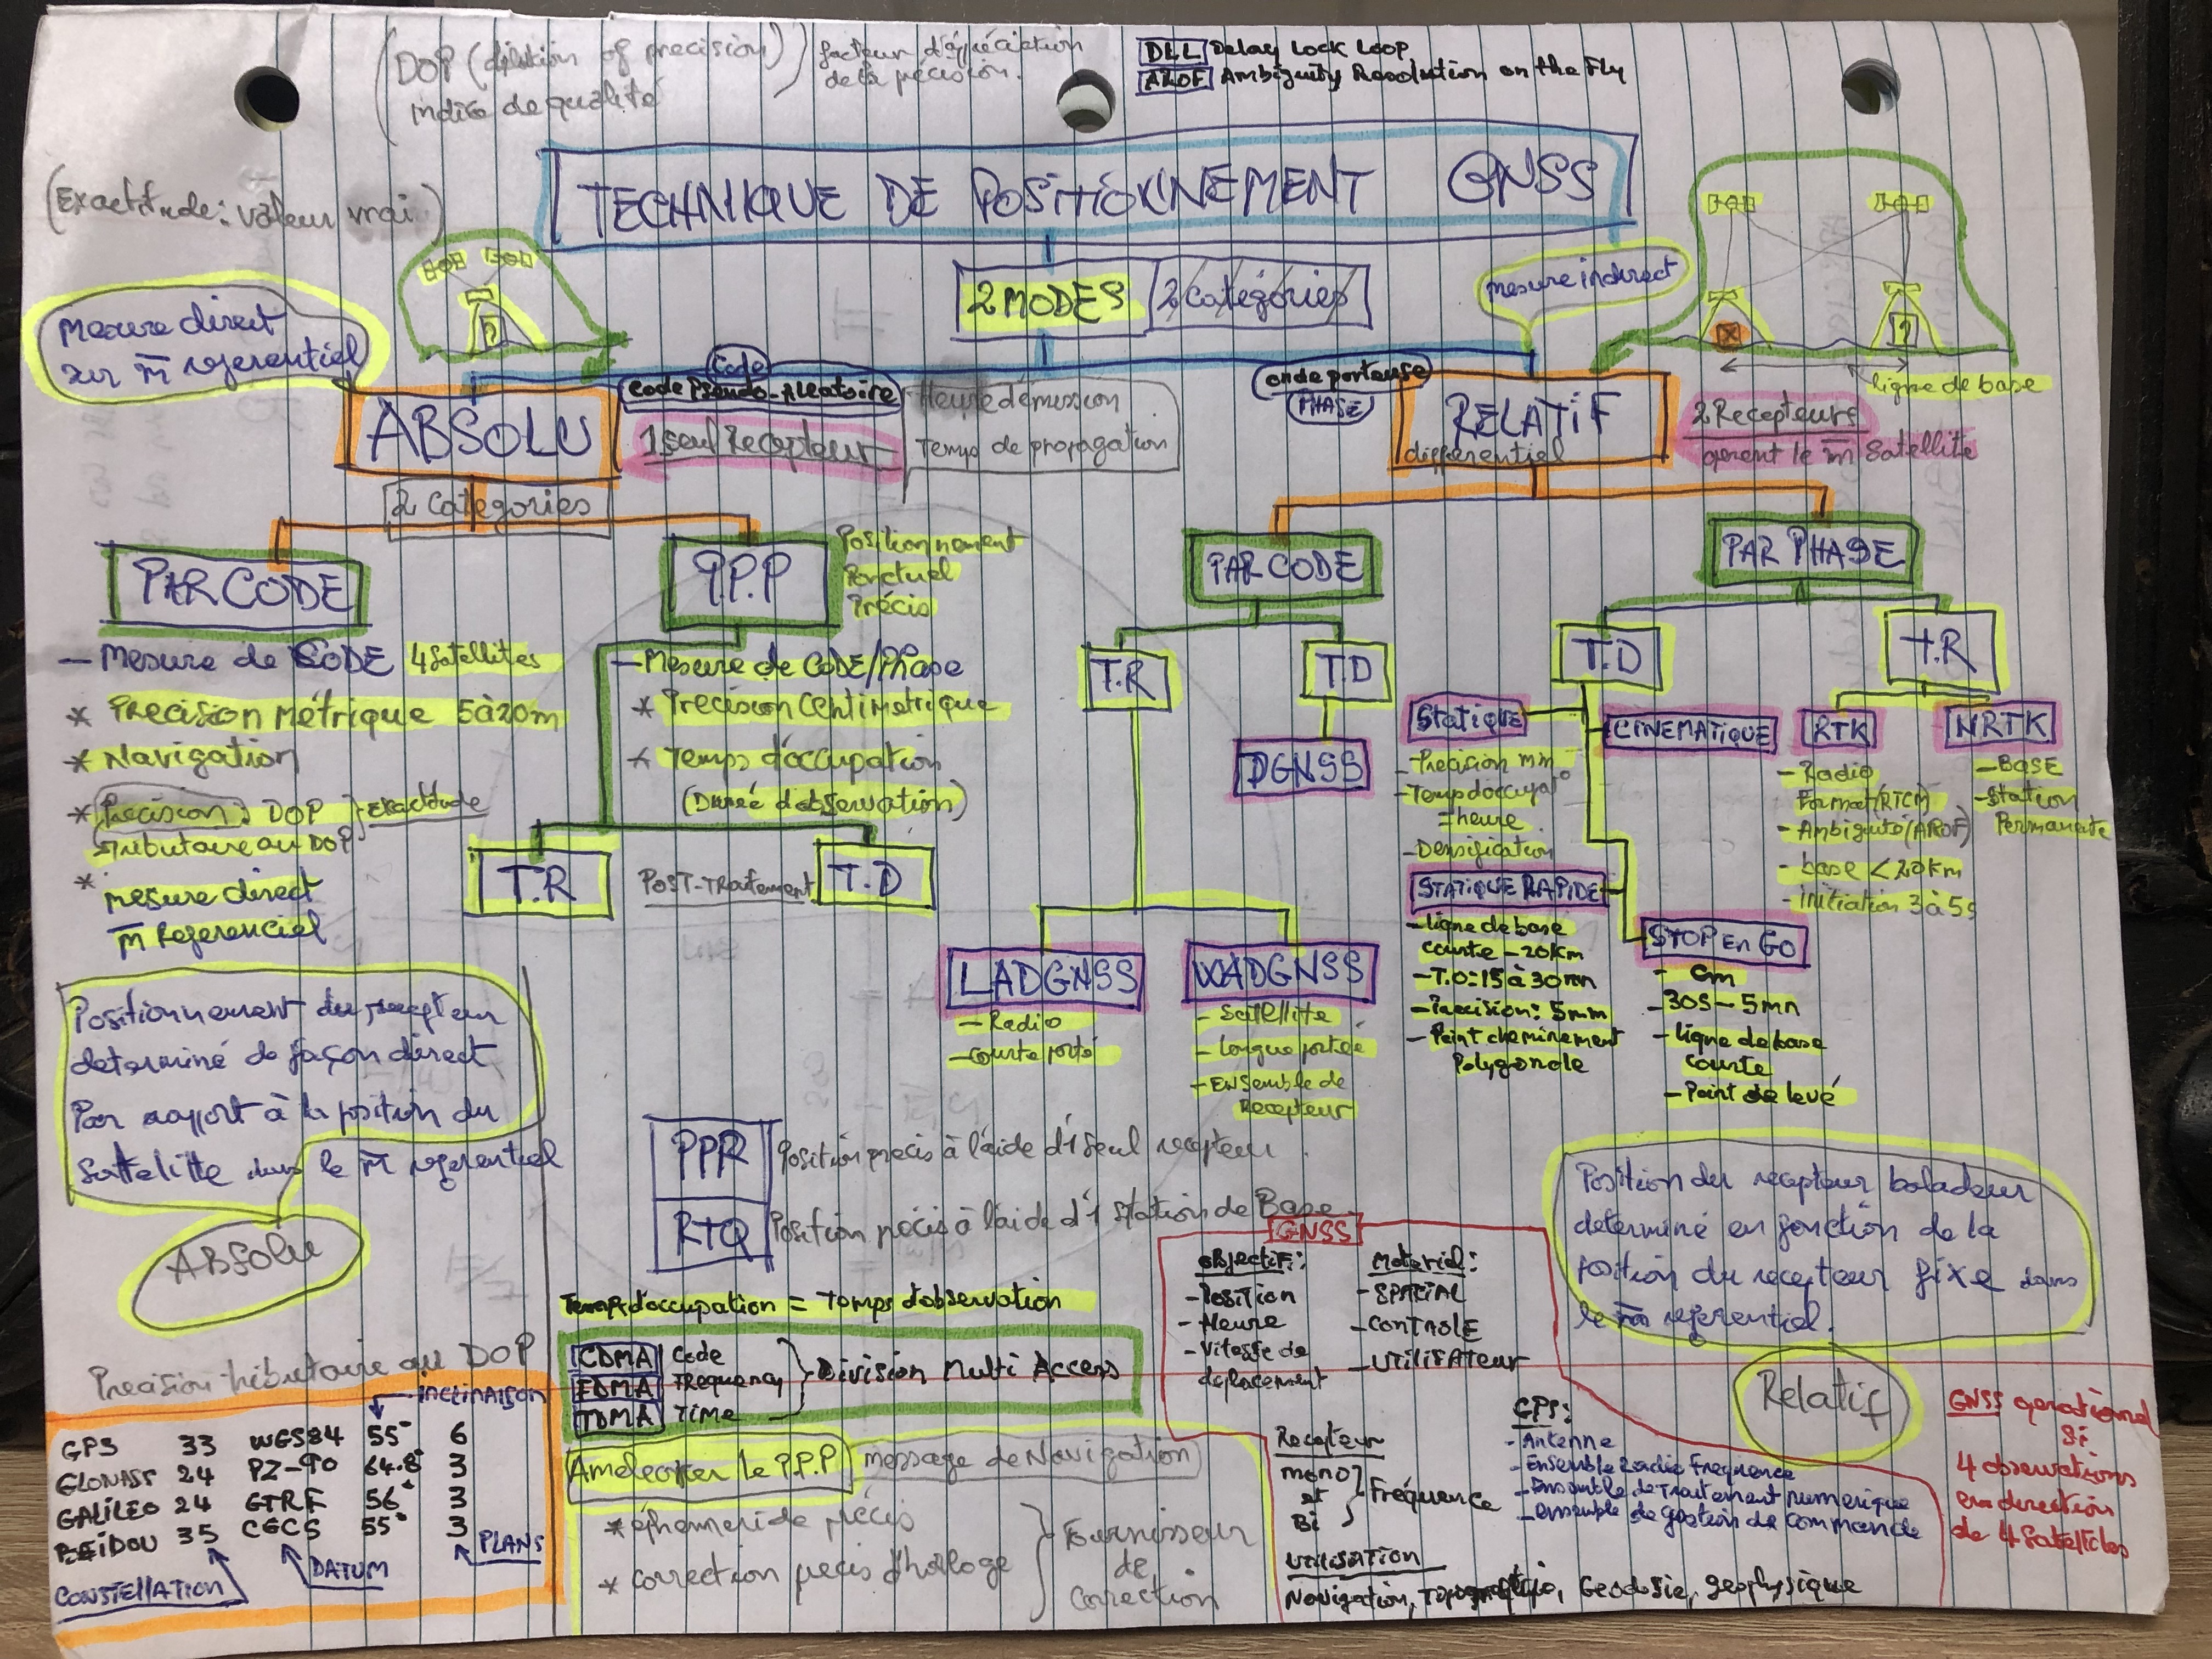 (DOP (dilution of precision)
indice de qualité
facteur d'appréciation
de la précision.
DLL Delay Lock Loop
AROF Ambiguity Resolution on the Fly
(Exactitude: valeur vrai)
TECHNIQUE DE POSITIONNEMENT GNSS
2 MODES
2 catégories
mesure indirect
Mesure direct
sur m̄ referentiel
ligne de base
Code
Code Pseudo-Aleatoire
ABSOLU
1 seul Recepteur
Heure d'émission
Temps de propagation
onde porteuse
PHASE
RELATIF
differentiel
2 Recepteurs
gerent le m̄ Satellite
2 Categories
PAR CODE
P.P.P
Positionnement
Ponctuel
Précis
PAR CODE
PAR PHASE
- Mesure de CODE 4 Satellites
* Precision Métrique 5 à 20m
* Navigation
* Precision: DOP
tributaire au DOP
exactitude
* mesure direct
m̄ Referenciel
- Mesure de CODE/Phase
* Precision Centimetrique
* Temps d'occupation
(Durée d'observation)
T.R
POST-Traitement
T.D
T.R
T.D
DGNSS
LADGNSS
- Radio
- courte porté
WADGNSS
- Satellite
- longue portée
- ENSemble de
Recepteur
T.D
T.R
Statique
- Precision mm
- Temps d'occupat°
= heure
- Densification
STATIQUE RAPIDE
- ligne de base
courte - 20Km
- T.O: 15 à 30mn
- Precision: 5mm
- Point cheminement
Polygonale
CINEMATIQUE
STOP En GO
- Cm
- 30S - 5mn
- ligne de base
courte
- Point de levé
RTK
- Radio
Format (RTCM)
- Ambiguité (AROF)
- base < 20km
- initiation 3 à 5s
NRTK
- BASE
- Station
Permanante
Positionnement du recepteur
determiné de façon direct
Par rapport à la position du
Sattelitte dans le m̄ referentiel
ABSolu
Precision tributaire au DOP
PPR Position précis à l'aide d'1 seul recepteur.
RTQ Position précis à l'aide d'1 Station de Base
Temps d'occupation = Temps d'observation
CDMA Code
FDMA Frequency
TDMA Time
Division Multi Access
GNSS
objectif:
- Position
- Heure
- Vitesse de
deplacement
Materiel:
- SPATIAL
- CONTROLE
- UTILISATEUR
Position du recepteur baladeur
determiné en fonction de la
position du recepteur fixe dans
le m̄ referentiel.
Relatif
INCLINAISON
GPS 33 WGS84 55° 6
GLONASS 24 PZ-90 64.8° 3
GALILEO 24 GTRF 56° 3
BEIDOU 35 CGCS 55° 3
PLANS
DATUM
CONSTELLATION
Ameliorer le P.P.P
message de Navigation
* éphemeride précis
* correction précis d'horloge
Fournisseur
de
Correction
Recepteur
mono
et
Bi
Fréquence
GPS:
- Antenne
- Ensemble Radio Frequence
- Ensemble de Traitement numerique
- ensemble de gestion de commande
Utilisation
Navigation, Topographie, Geodesie, geophysique
GNSS operationel
si
4 observations
en direction
de 4 Satellites